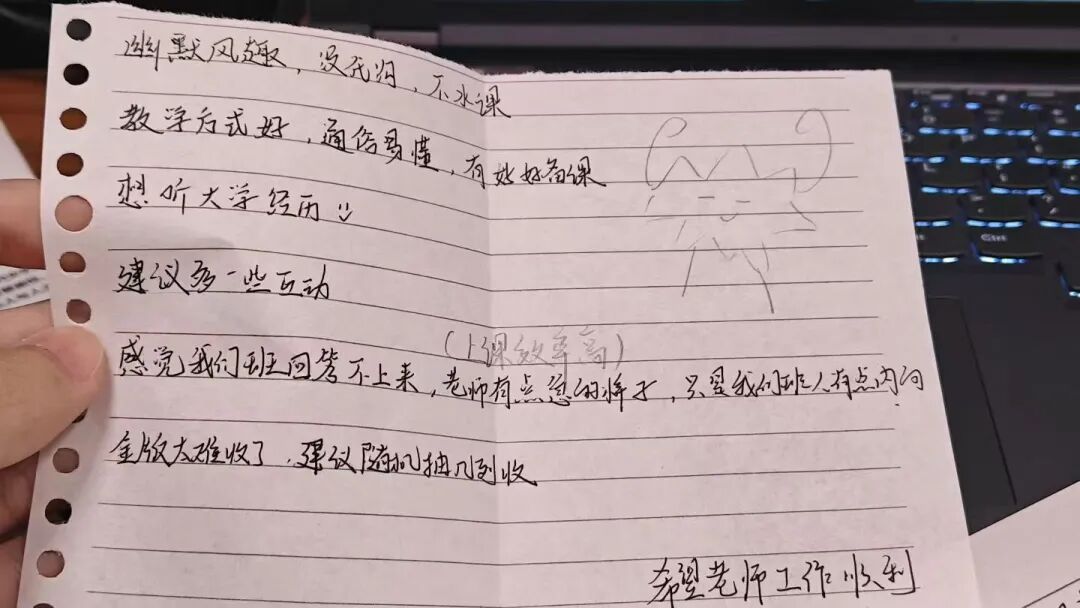 幽默风趣，没死沟，不水课
教学方式好，通俗易懂，有好好备课
想听大学经历
建议多一些互动
（上课效率高）
感觉我们班回答不上来，老师有点急的样子，只是我们班人有点内向
金版太难收了，建议随机抽几列收
希望老师工作顺利
Ctrl